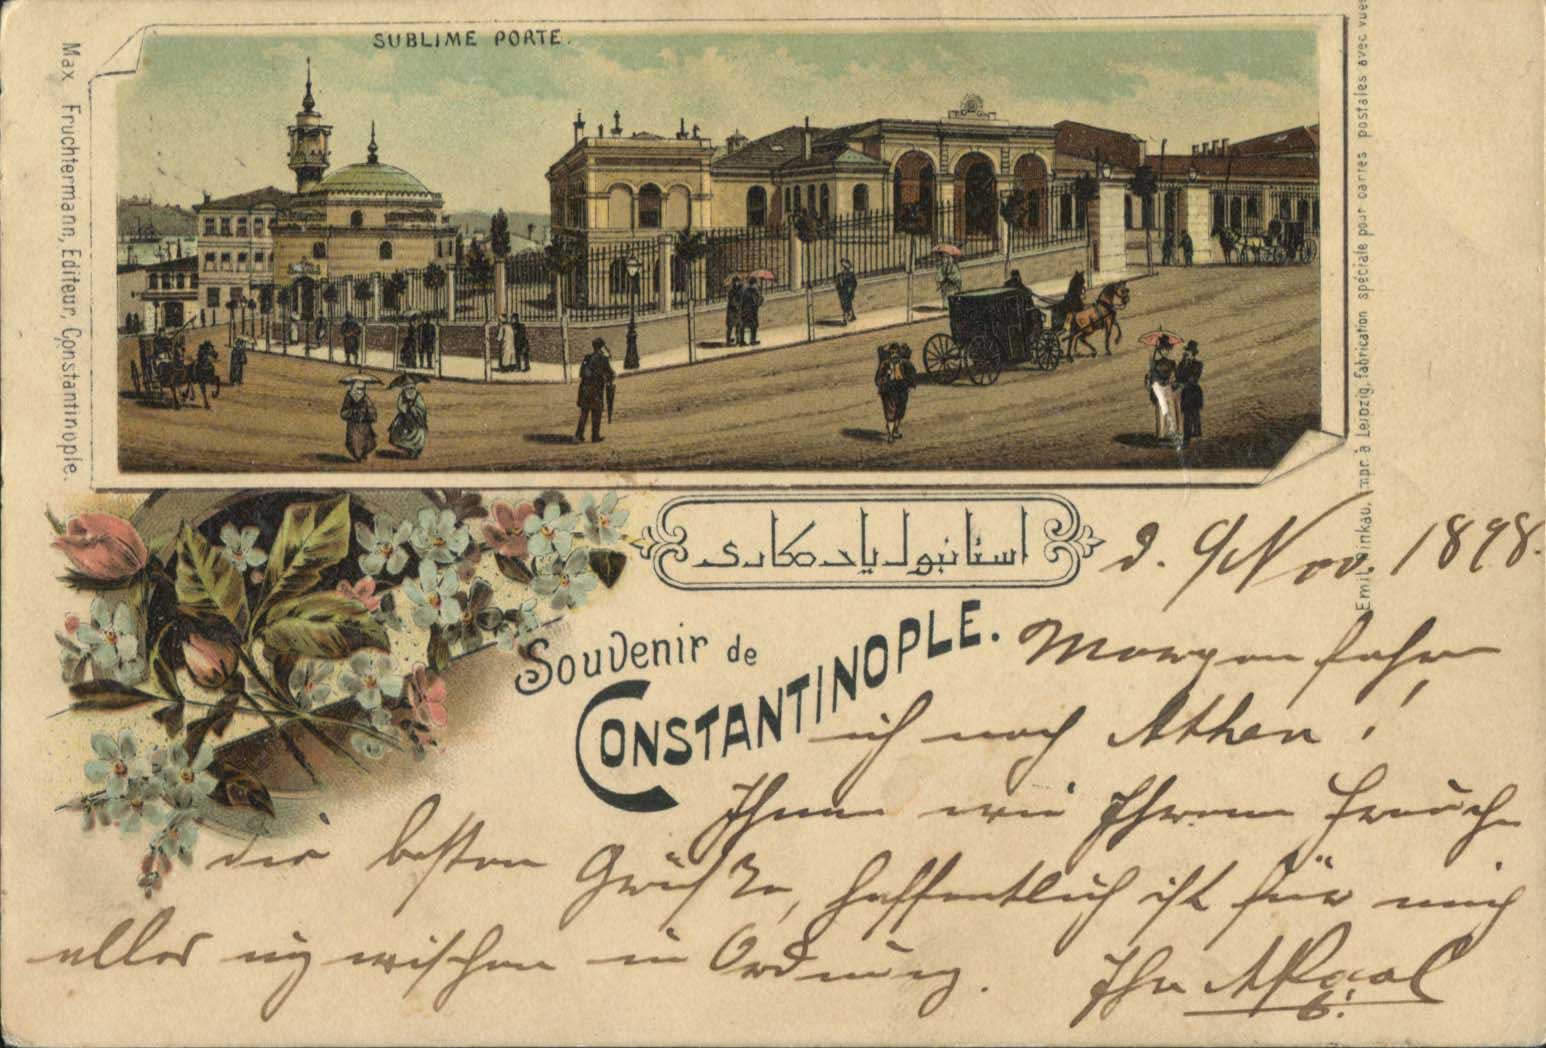 SUBLIME PORTE.
Max Fruchtermann, Editeur, Constantinople.
Emil Pinkau, impr. à Leipzig, fabrication spéciale pour cartes postales avec vues
استانبول يادكارى
Souvenir de
CONSTANTINOPLE.
d. 9 Nov. 1898.
Morgen fahre
ich nach Athen!
Ihnen wie Ihrem
die besten Grüße, hoffentlich ist für mich
alles inzwischen in Ordnung.
Ihr